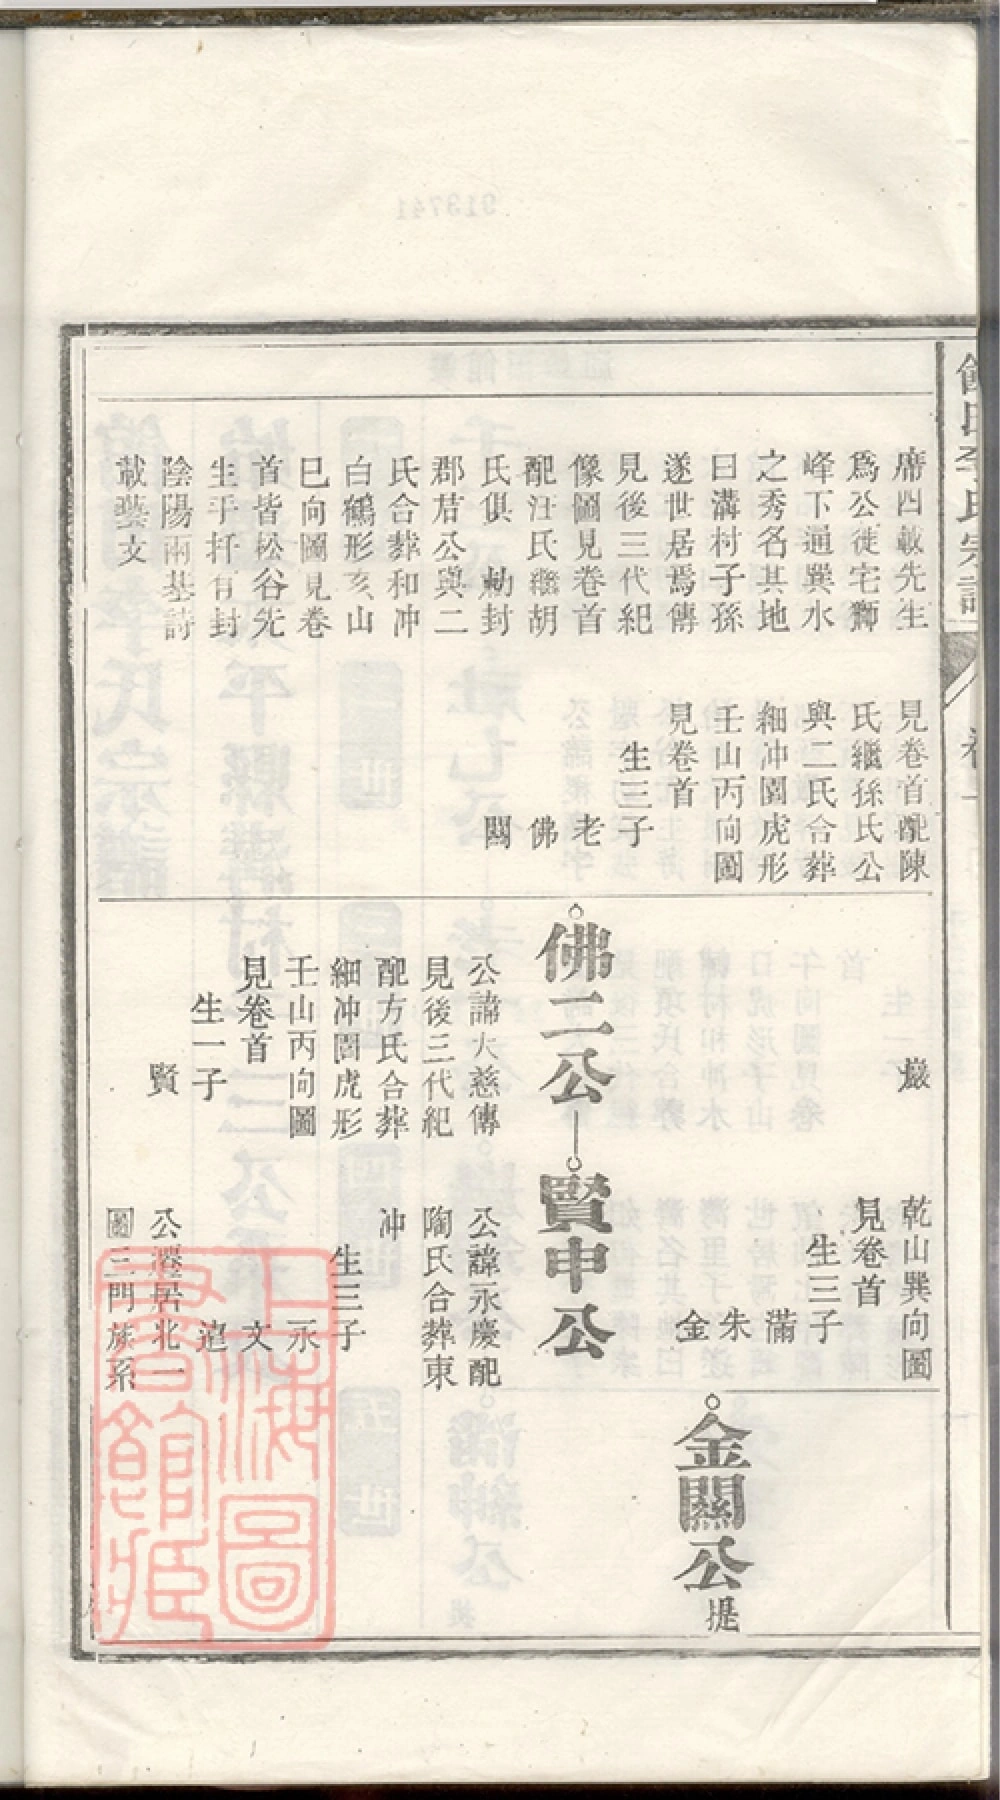 館田李氏宗譜
卷一
席四載先生
爲公徙宅獅
峰下通巽水
之秀名其地
曰溝村子孫
遂世居焉傳
見後三代紀
像圖見卷首
配汪氏繼胡
氏俱 勅封
郡君公與二
氏合葬和冲
白鶴形亥山
巳向圖見卷
首皆松谷先
生手扦有封
陰陽兩基詩
載藝文
見卷首配陳
氏繼孫氏公
與二氏合葬
細冲園虎形
壬山丙向圖
見卷首
生三子
老
佛
關
巌
佛二公
公諱大慈傳
見後三代紀
配方氏合葬
細冲園虎形
壬山丙向圖
見卷首
生一子
賢
乾山巽向圖
見卷首
生三子
滿
朱
金
賢申公
公諱永慶配
陶氏合葬東
冲
生三子
永
文
公遷居北一
圖三門族系
金關公
提
上海圖書館藏